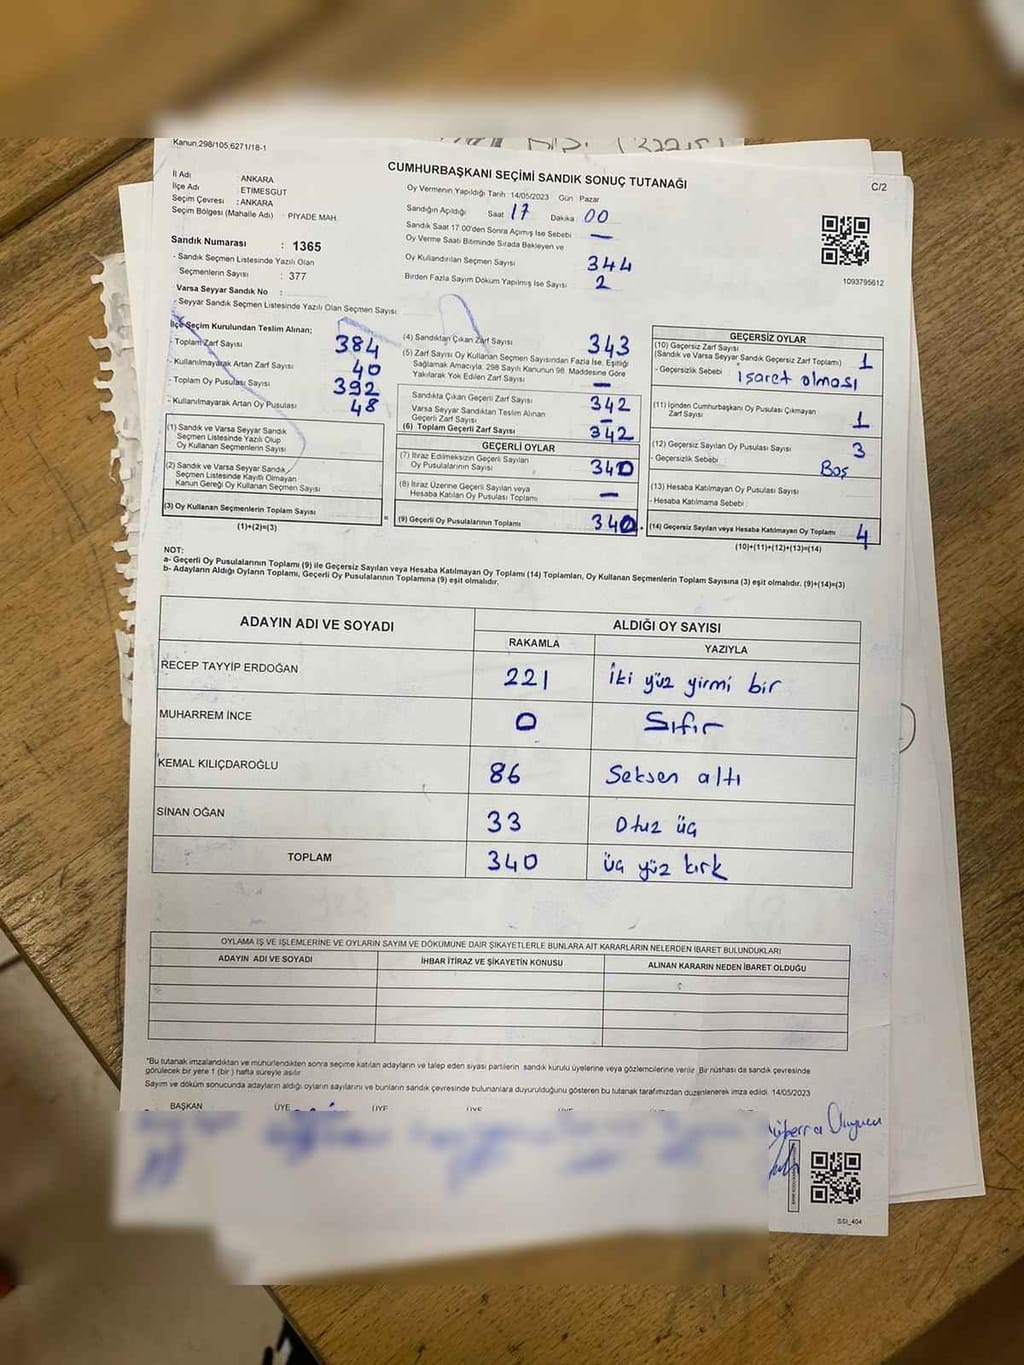 Kanun,298/105,6271/18-1
CUMHURBAŞKANI SEÇİMİ SANDIK SONUÇ TUTANAĞI
C/2
İl Adı ANKARA
İlçe Adı ETİMESGUT
Seçim Çevresi : ANKARA
Seçim Bölgesi (Mahalle Adı) PİYADE MAH.
Sandık Numarası : 1365
- Sandık Seçmen Listesinde Yazılı Olan
Seçmenlerin Sayısı : 377
Varsa Seyyar Sandık No :
- Seyyar Sandık Seçmen Listesinde Yazılı Olan Seçmen Sayısı
Oy Vermenin Yapıldığı Tarih : 14/05/2023 Gün : Pazar
Sandığın Açıldığı Saat 17 Dakika 00
Sandık Saat 17.00'den Sonra Açılmış İse Sebebi —
Oy Verme Saati Bitiminde Sırada Bekleyen ve
Oy Kullandırılan Seçmen Sayısı 344
Birden Fazla Sayım Döküm Yapılmış İse Sayısı 2
1093795612
İlçe Seçim Kurulundan Teslim Alınan;
- Toplam Zarf Sayısı 384
- Kullanılmayarak Artan Zarf Sayısı 40
- Toplam Oy Pusulası Sayısı 392
- Kullanılmayarak Artan Oy Pusulası 48
(1) Sandık ve Varsa Seyyar Sandık
Seçmen Listesinde Yazılı Olup
Oy Kullanan Seçmenlerin Sayısı
(2) Sandık ve Varsa Seyyar Sandık
Seçmen Listesinde Kayıtlı Olmayan
Kanun Gereği Oy Kullanan Seçmen Sayısı
(3) Oy Kullanan Seçmenlerin Toplam Sayısı
(1)+(2)=(3)
(4) Sandıktan Çıkan Zarf Sayısı 343
(5) Zarf Sayısı Oy Kullanan Seçmen Sayısından Fazla İse, Eşitliği
Sağlamak Amacıyla, 298 Sayılı Kanunun 98. Maddesine Göre
Yakılarak Yok Edilen Zarf Sayısı —
Sandıkta Çıkan Geçerli Zarf Sayısı 342
Varsa Seyyar Sandıktan Teslim Alınan
Geçerli Zarf Sayısı —
(6) Toplam Geçerli Zarf Sayısı 342
GEÇERLİ OYLAR
(7) İtiraz Edilmeksizin Geçerli Sayılan
Oy Pusulalarının Sayısı 340
(8) İtiraz Üzerine Geçerli Sayılan veya
Hesaba Katılan Oy Pusulası Toplamı —
= (9) Geçerli Oy Pusulalarının Toplamı 340
GEÇERSİZ OYLAR
(10) Geçersiz Zarf Sayısı
(Sandık ve Varsa Seyyar Sandık Geçersiz Zarf Toplamı) 1
- Geçersizlik Sebebi işaret olması
(11) İçinden Cumhurbaşkanı Oy Pusulası Çıkmayan
Zarf Sayısı 1
(12) Geçersiz Sayılan Oy Pusulası Sayısı 3
- Geçersizlik Sebebi Boş
(13) Hesaba Katılmayan Oy Pusulası Sayısı
- Hesaba Katılmama Sebebi :
(14) Geçersiz Sayılan veya Hesaba Katılmayan Oy Toplamı 4
(10)+(11)+(12)+(13)=(14)
NOT:
a- Geçerli Oy Pusulalarının Toplamı (9) ile Geçersiz Sayılan veya Hesaba Katılmayan Oy Toplamı (14) Toplamları, Oy Kullanan Seçmenlerin Toplam Sayısına (3) eşit olmalıdır. (9)+(14)=(3)
b- Adayların Aldığı Oyların Toplamı, Geçerli Oy Pusulalarının Toplamına (9) eşit olmalıdır.
ADAYIN ADI VE SOYADI ALDIĞI OY SAYISI
RAKAMLA YAZIYLA
RECEP TAYYİP ERDOĞAN 221 İki yüz yirmi bir
MUHARREM İNCE 0 Sıfır
KEMAL KILIÇDAROĞLU 86 Seksen altı
SİNAN OĞAN 33 Otuz üç
TOPLAM 340 üç yüz kırk
OYLAMA İŞ VE İŞLEMLERİNE VE OYLARIN SAYIM VE DÖKÜMÜNE DAİR ŞİKAYETLERLE BUNLARA AİT KARARLARIN NELERDEN İBARET BULUNDUKLARI
ADAYIN ADI VE SOYADI İHBAR İTİRAZ VE ŞİKAYETİN KONUSU ALINAN KARARIN NEDEN İBARET OLDUĞU
*Bu tutanak imzalandıktan ve mühürlendikten sonra seçime katılan adayların ve talep eden siyasi partilerin sandık kurulu üyelerine veya gözlemcilerine verilir. Bir nüshası da sandık çevresinde
görülecek bir yere 1 (bir) hafta süreyle asılır.
Sayım ve döküm sonucunda adayların aldığı oyların sayılarını ve bunların sandık çevresinde bulunanlara duyurulduğunu gösteren bu tutanak tarafımızdan düzenlenerek imza edildi. 14/05/2023
BAŞKAN ÜYE ÜYE ÜYE ÜYE
SSI_404